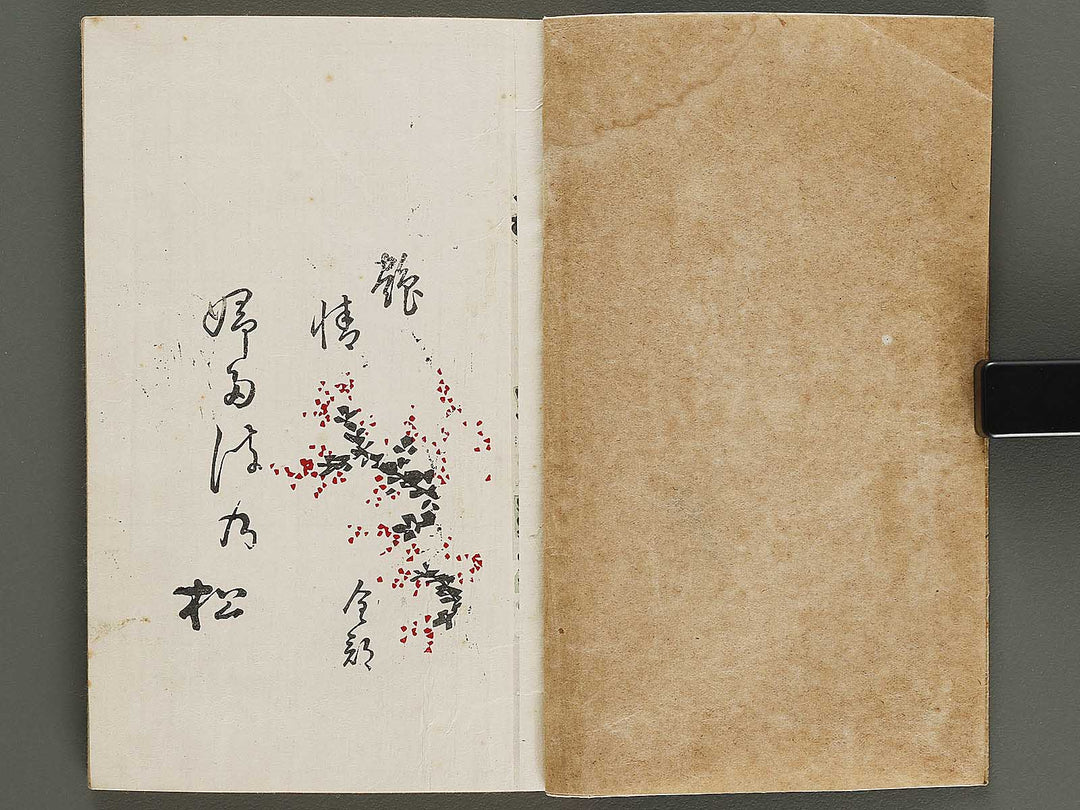 艶
情
全部
婦多波乃松